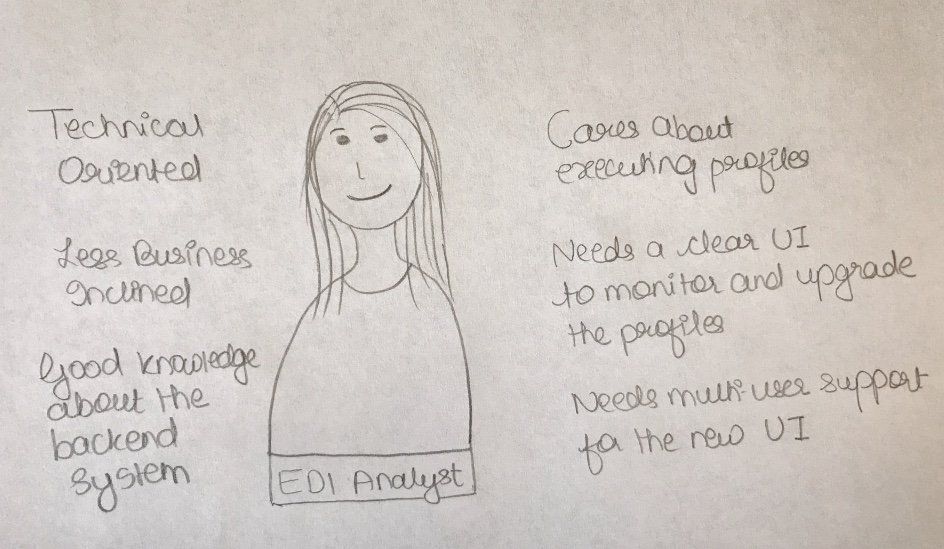 Technical
Oriented
Less Business
Inclined
Good knowledge
about the
backend
system
EDI Analyst
Cares about
executing profiles
Needs a clear UI
to monitor and upgrade
the profiles
Needs multi-user support
for the new UI